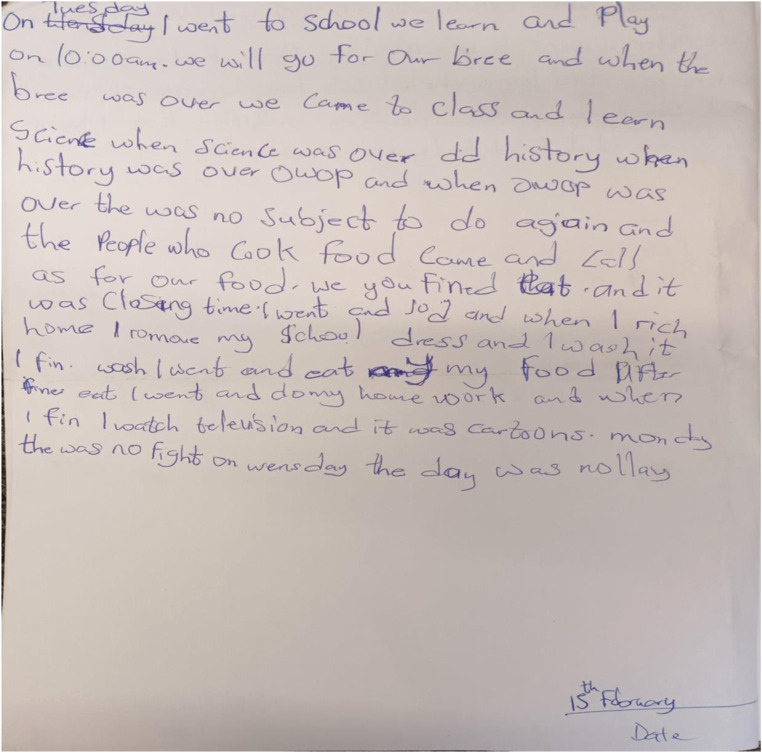 Tuesday
On I went to school we learn and Play
on 10:00am. we will go for our bree and when the
bree was over we came to class and learn
Science when science was over did history when
history was over OWOP and when OWOP was
over the was no subject to do again and
the People who Cook food Came and Call
as for our food. we you fined that. and it
was Closing time. I went and and when I rich
home I romove my school dress and I wash it
I fin. wash I went and eat my food After
eat I went and do my home work and when
I fin I watch television and it was cartoons. monday
the was no fight on wensday the day was
15th February
Date